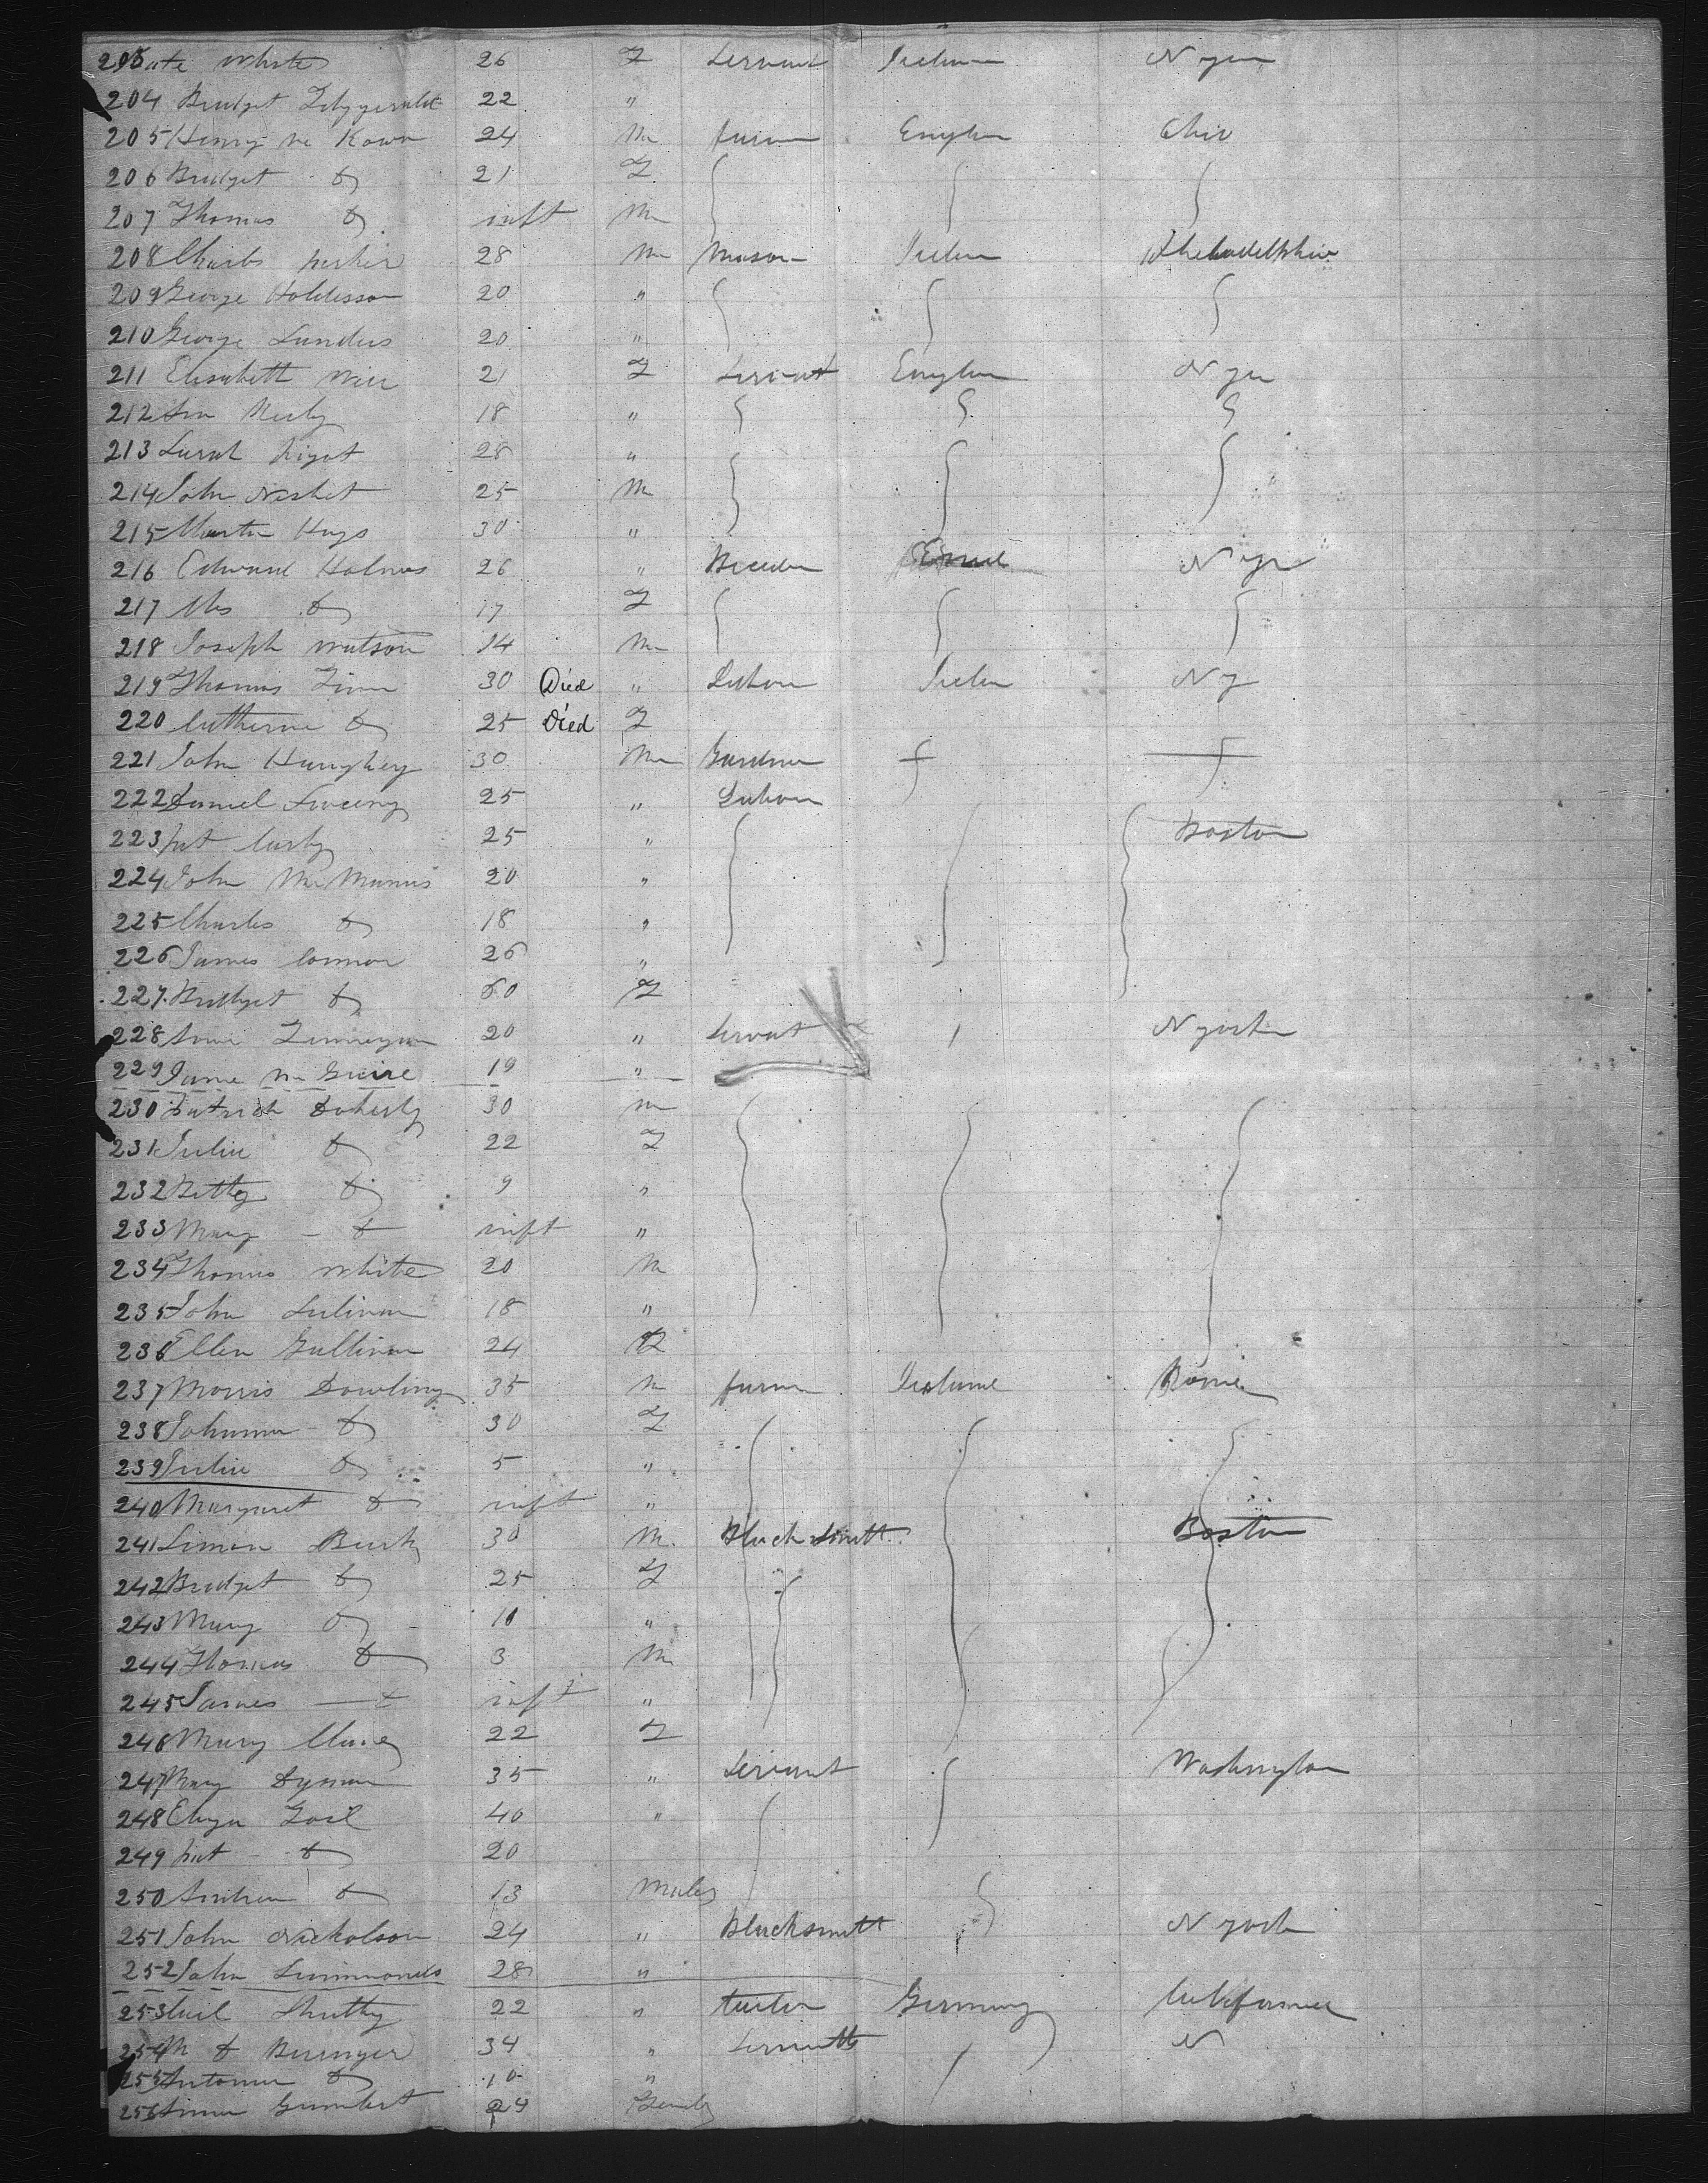 203 Kate White 26 F Servant Ireland N York
204 Bridget Fitzgerald 22 "
205 Henry Mc Kown 24 M farmer England Ohio
206 Bridget do 21 F
207 Thomas do inft M
208 Charles parker 28 M Mason Ireland Pheladelphia
209 George Holdesson 20 "
210 George Sanders 20 "
211 Elisabett Wier 21 F Servant England N York
212 Ann 18 "
213 Sarah 28 "
214 John Nesbet 25 M
215 Martin Hays 30 "
216 Edward Holmes 26 " N York
217 Mrs do 17 F
218 Joseph Watson 14 M
219 Thomas Finn 30 Died " Labour Ireland N Y
220 Catherine do 25 Died F
221 John Haughey 30 M Gardner
222 Daniel Sweeny 25 " Labour
223 pat 25 " Boston
224 John Mc Manus 20 "
225 Charles do 18 "
226 James Connor 26 "
227 Bridget do 60 F
228 Annie Finnegan 20 " Servant N York
229 Jane Mc Guire 19 "
230 Patrick Doherty 30 M
231 Julia do 22 F
232 Betty do 9 "
233 Mary do inft "
234 Thomas White 20 M
235 John Sulivan 18 "
236 Ellen Sullivan 24
237 Morris Dowling 35 M farmer Ireland Rome
238 Johanna do 30 F
239 Julia do 5 "
240 Margaret do inft "
241 Simon Burk 30 M Black Smitt Boston
242 Bridget do 25 F
243 Mary do 10 "
244 Thomas do 3 M
245 James do inft "
246 Mary 22 F
247 Mary 35 " Servant Washington
248 40 "
249 pat do 20
250 Andrew do 13 Males
251 John Nickolson 24 " Blacksmitt N York
252 John Simmonds 28 "
253 22 " Germany
254 M & Beringer 34 " N
255 do 10 "
256 Gumbert 24